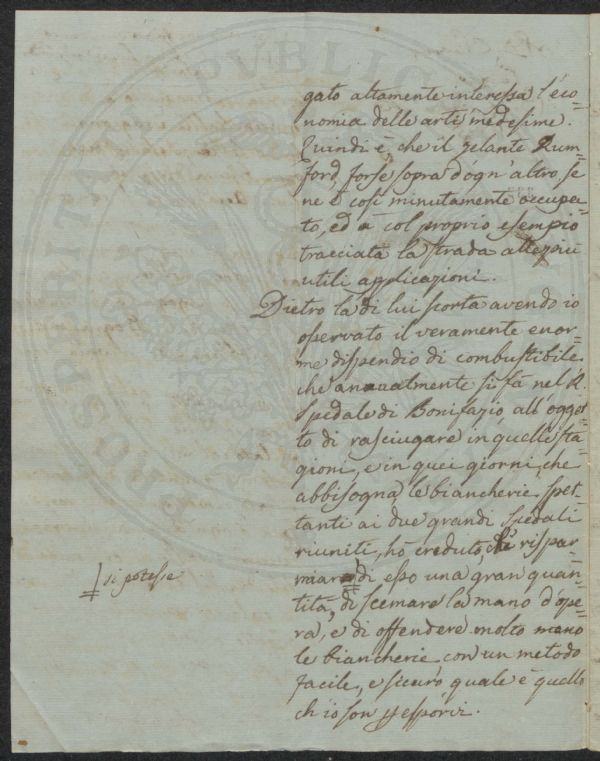 gato altamente interessa l'eco=
nomia delle arti medesime.
Quindi è che il zelante Rum=
ford, forse sopra d'ogn'altro, se
ne è così minutamente occupa=
to, ed à col proprio esempio
tracciata la strada alle più
utili applicazioni.
Dietro la di lui scorta avendo io
osservato il veramente enor=
me dispendio di combustibile
che annualmente si fà nel R.
Spedale di Bonifazio all'ogget=
to di rasciugare in quelle sta=
gioni, e in quei giorni, che
abbisogna, le biancherie spet=
tanti ai due grandi Spedali
riuniti, hò creduto, che rispar=
miare di esso una gran quan=
‡ si potesse
tità, di scemare la mano d'ope=
ra, e di offendere molto meno
le biancherie con un metodo
facile, e sicuro, quale è quello
ch'io son p esporvi.
PVBLIC
PROSPERITA